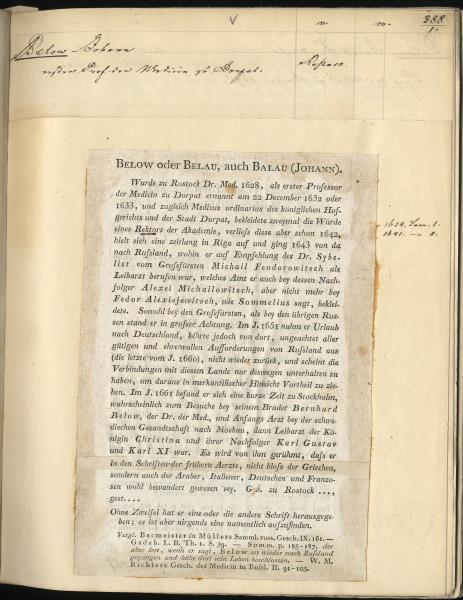 388.
1.
Below Johann
erster Prof. der Medicin zu Dorpat.
BELOW oder BELAU, auch BALAU (JOHANN).
Wurde zu Rostock Dr. Med. 1628, als erster Professor
der Medicin zu Dorpat ernannt am 22 December 1632 oder
1633, und zugleich Medicus ordinarius des königlichen Hof-
gerichts und der Stadt Dorpat, bekleidete zweymal die Würde
eines Rektors der Akademie, verliess diese aber schon 1642,
hielt sich eine zeitlang in Riga auf und ging 1643 von da
nach Russland, wohin er auf Empfehlung des Dr. Sybe-
list vom Grossfürsten Michail Feodorowitsch als
Leibarzt berufen war, welches Amt er auch bey dessen Nach-
folger Alexei Michailowitsch, aber nicht mehr bey
Fedor Alexiejewitsch, wie Sommelius sagt, beklei-
dete. Sowohl bey den Grossfürsten, als bey den übrigen Rus-
sen stand er in grosser Achtung. Im J. 1651 nahm er Urlaub
nach Deutschland, kehrte jedoch von dort, ungeachtet aller
gütigen und ehrenvollen Aufforderungen von Russland aus
(die letzte vom J. 1660), nicht wieder zurück, und scheint die
Verbindungen mit diesem Lande nur deswegen unterhalten zu
haben, um daraus in merkantilischer Hinsicht Vortheil zu zie-
hen. Im J. 1661 befand er sich eine kurze Zeit zu Stockholm,
wahrscheinlich zum Besuche bey seinem Bruder Bernhard
Below, der Dr. der Med., und Anfangs Arzt bey der schwe-
dischen Gesandtschaft nach Moskau, dann Leibarzt der Kö-
nigin Christina und ihrer Nachfolger Karl Gustav
und Karl XI war. Es wird von ihm gerühmt, dass er
in den Schriften der frühern Aerzte, nicht bloss der Griechen,
sondern auch der Araber, Italiener, Deutschen und Franzo-
sen wohl bewandert gewesen sey. Geb. zu Rostock ...,
gest....
Ohne Zweifel hat er eine oder die andere Schrift herausgege-
ben; es ist aber nirgends eine namentlich aufzufinden.
Vergl. Bacmeister in Müllers Samml. russ. Gesch. IX. 161. —
Gadeb. L. B. Th. 1. S. 39. — Somm. p. 185-187, der
aber irrt, wenn er sagt, Below sey wieder nach Russland
gegangen und hätte dort sein Leben beschlossen. — W. M.
Richters Gesch. der Medicin in Russl. II. 91-103.